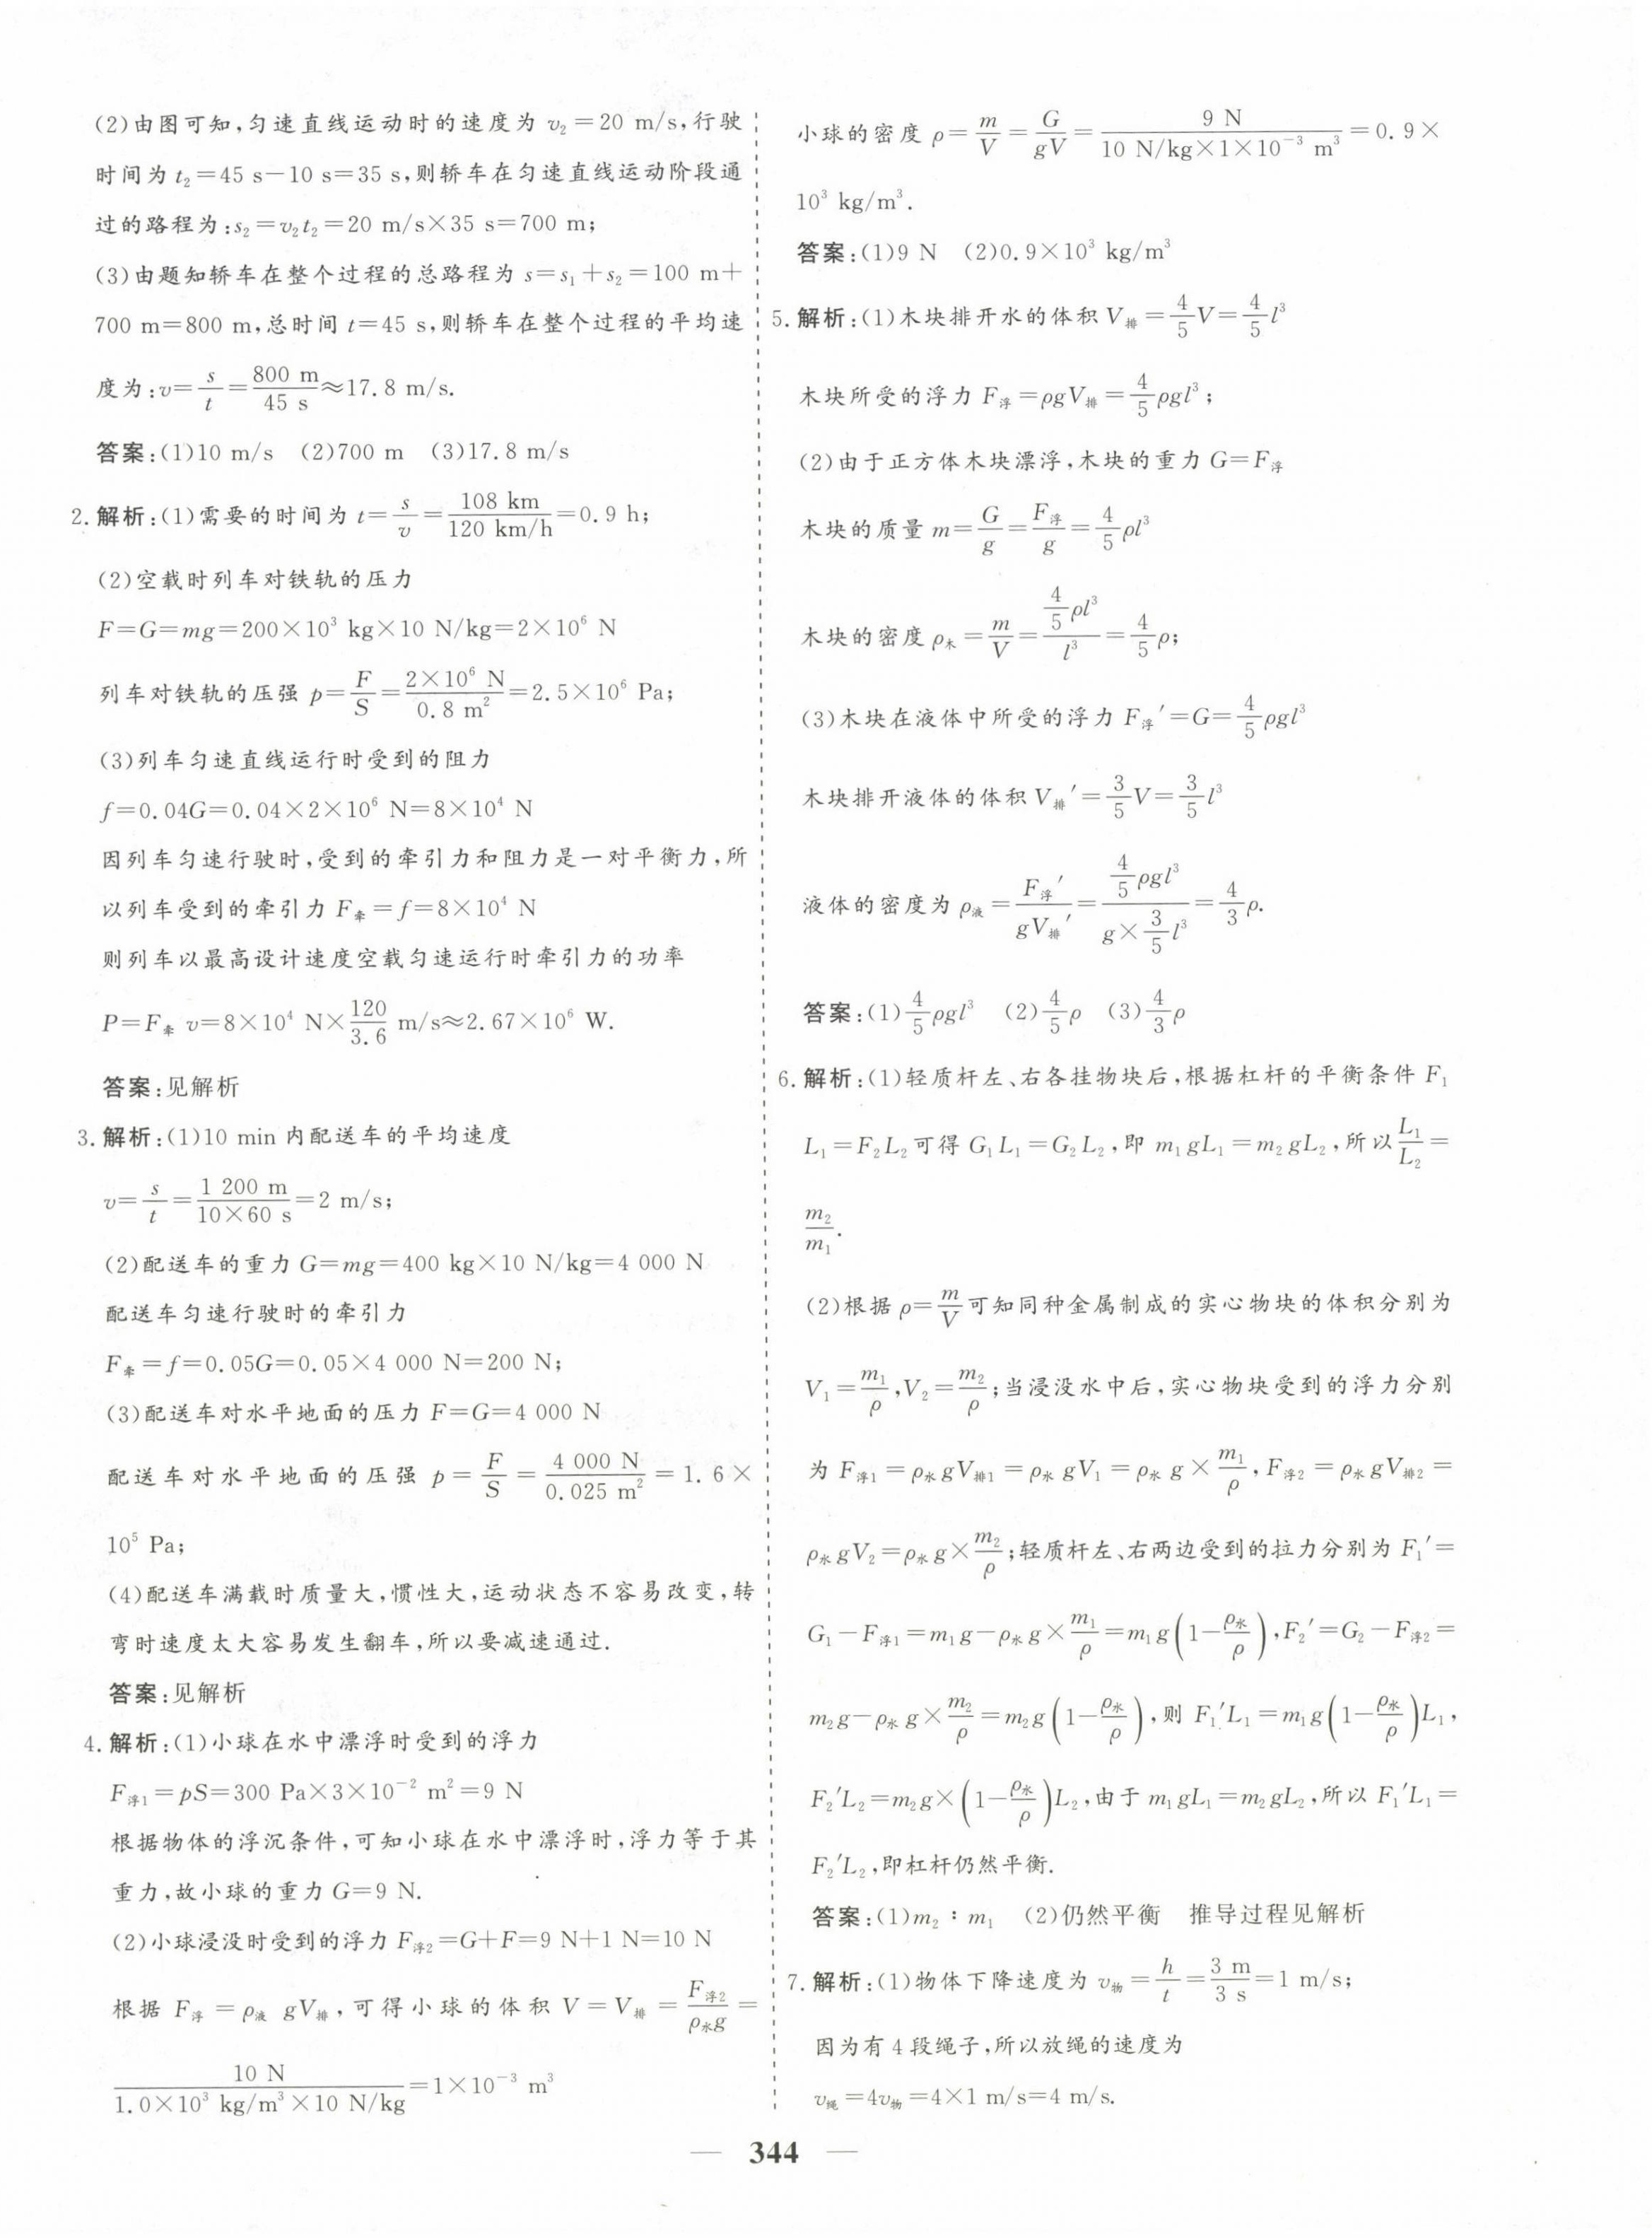 (2)由图可知,匀速直线运动时的速度为 v₂=20 m/s,行驶
时间为 t₂=45 s-10 s=35 s,则轿车在匀速直线运动阶段通
过的路程为:s₂=v₂t₂=20 m/s×35 s=700 m;
(3)由题知轿车在整个过程的总路程为 s=s₁+s₂=100 m+
700 m=800 m,总时间 t=45 s,则轿车在整个过程的平均速
度为:v=s/t=800 m/45 s≈17.8 m/s.
答案:(1)10 m/s (2)700 m (3)17.8 m/s
2.解析:(1)需要的时间为 t=s/v=108 km/120 km/h=0.9 h;
(2)空载时列车对铁轨的压力
F=G=mg=200×10³ kg×10 N/kg=2×10⁶ N
列车对铁轨的压强 p=F/S=2×10⁶ N/0.8 m²=2.5×10⁶ Pa;
(3)列车匀速直线运行时受到的阻力
f=0.04G=0.04×2×10⁶ N=8×10⁴ N
因列车匀速行驶时,受到的牵引力和阻力是一对平衡力,所
以列车受到的牵引力 F牵=f=8×10⁴ N
则列车以最高设计速度空载匀速运行时牵引力的功率
P=F牵 v=8×10⁴ N×120/3.6 m/s≈2.67×10⁶ W.
答案:见解析
3.解析:(1)10 min 内配送车的平均速度
v=s/t=1 200 m/10×60 s=2 m/s;
(2)配送车的重力 G=mg=400 kg×10 N/kg=4 000 N
配送车匀速行驶时的牵引力
F牵=f=0.05G=0.05×4 000 N=200 N;
(3)配送车对水平地面的压力 F=G=4 000 N
配送车对水平地面的压强 p=F/S=4 000 N/0.025 m²=1.6×
10⁵ Pa;
(4)配送车满载时质量大,惯性大,运动状态不容易改变,转
弯时速度太大容易发生翻车,所以要减速通过.
答案:见解析
4.解析:(1)小球在水中漂浮时受到的浮力
F浮1=pS=300 Pa×3×10⁻² m²=9 N
根据物体的浮沉条件,可知小球在水中漂浮时,浮力等于其
重力,故小球的重力 G=9 N.
(2)小球浸没时受到的浮力 F浮2=G+F=9 N+1 N=10 N
根据 F浮=ρ液 gV排,可得小球的体积 V=V排=F浮2/ρ水g=
10 N/1.0×10³ kg/m³×10 N/kg=1×10⁻³ m³
小球的密度 ρ=m/V=G/gV=9 N/10 N/kg×1×10⁻³ m³=0.9×
10³ kg/m³.
答案:(1)9 N (2)0.9×10³ kg/m³
5.解析:(1)木块排开水的体积 V排=4/5V=4/5l³
木块所受的浮力 F浮=ρgV排=4/5ρgl³;
(2)由于正方体木块漂浮,木块的重力 G=F浮
木块的质量 m=G/g=F浮/g=4/5ρl³
木块的密度 ρ木=m/V=(4/5ρl³)/l³=4/5ρ;
(3)木块在液体中所受的浮力 F浮′=G=4/5ρgl³
木块排开液体的体积 V排′=3/5V=3/5l³
液体的密度为 ρ液=F浮′/gV排′=(4/5ρgl³)/(g×3/5l³)=4/3ρ.
答案:(1)4/5ρgl³ (2)4/5ρ (3)4/3ρ
6.解析:(1)轻质杆左、右各挂物块后,根据杠杆的平衡条件 F₁
L₁=F₂L₂可得 G₁L₁=G₂L₂,即 m₁gL₁=m₂gL₂,所以L₁/L₂=
m₂/m₁.
(2)根据 ρ=m/V可知同种金属制成的实心物块的体积分别为
V₁=m₁/ρ,V₂=m₂/ρ;当浸没水中后,实心物块受到的浮力分别
为 F浮1=ρ水gV排1=ρ水 gV₁=ρ水 g×m₁/ρ,F浮2=ρ水gV排2=
ρ水gV₂=ρ水g×m₂/ρ;轻质杆左、右两边受到的拉力分别为 F₁′=
G₁-F浮1=m₁g-ρ水g×m₁/ρ=m₁g(1-ρ水/ρ),F₂′=G₂-F浮2=
m₂g-ρ水g×m₂/ρ=m₂g(1-ρ水/ρ),则 F₁′L₁=m₁g(1-ρ水/ρ)L₁,
F₂′L₂=m₂g×(1-ρ水/ρ)L₂,由于 m₁gL₁=m₂gL₂,所以 F₁′L₁=
F₂′L₂,即杠杆仍然平衡.
答案:(1)m₂∶m₁ (2)仍然平衡 推导过程见解析
7.解析:(1)物体下降速度为 v物=h/t=3 m/3 s=1 m/s;
因为有 4 段绳子,所以放绳的速度为
v绳=4v物=4×1 m/s=4 m/s.
— 344 —